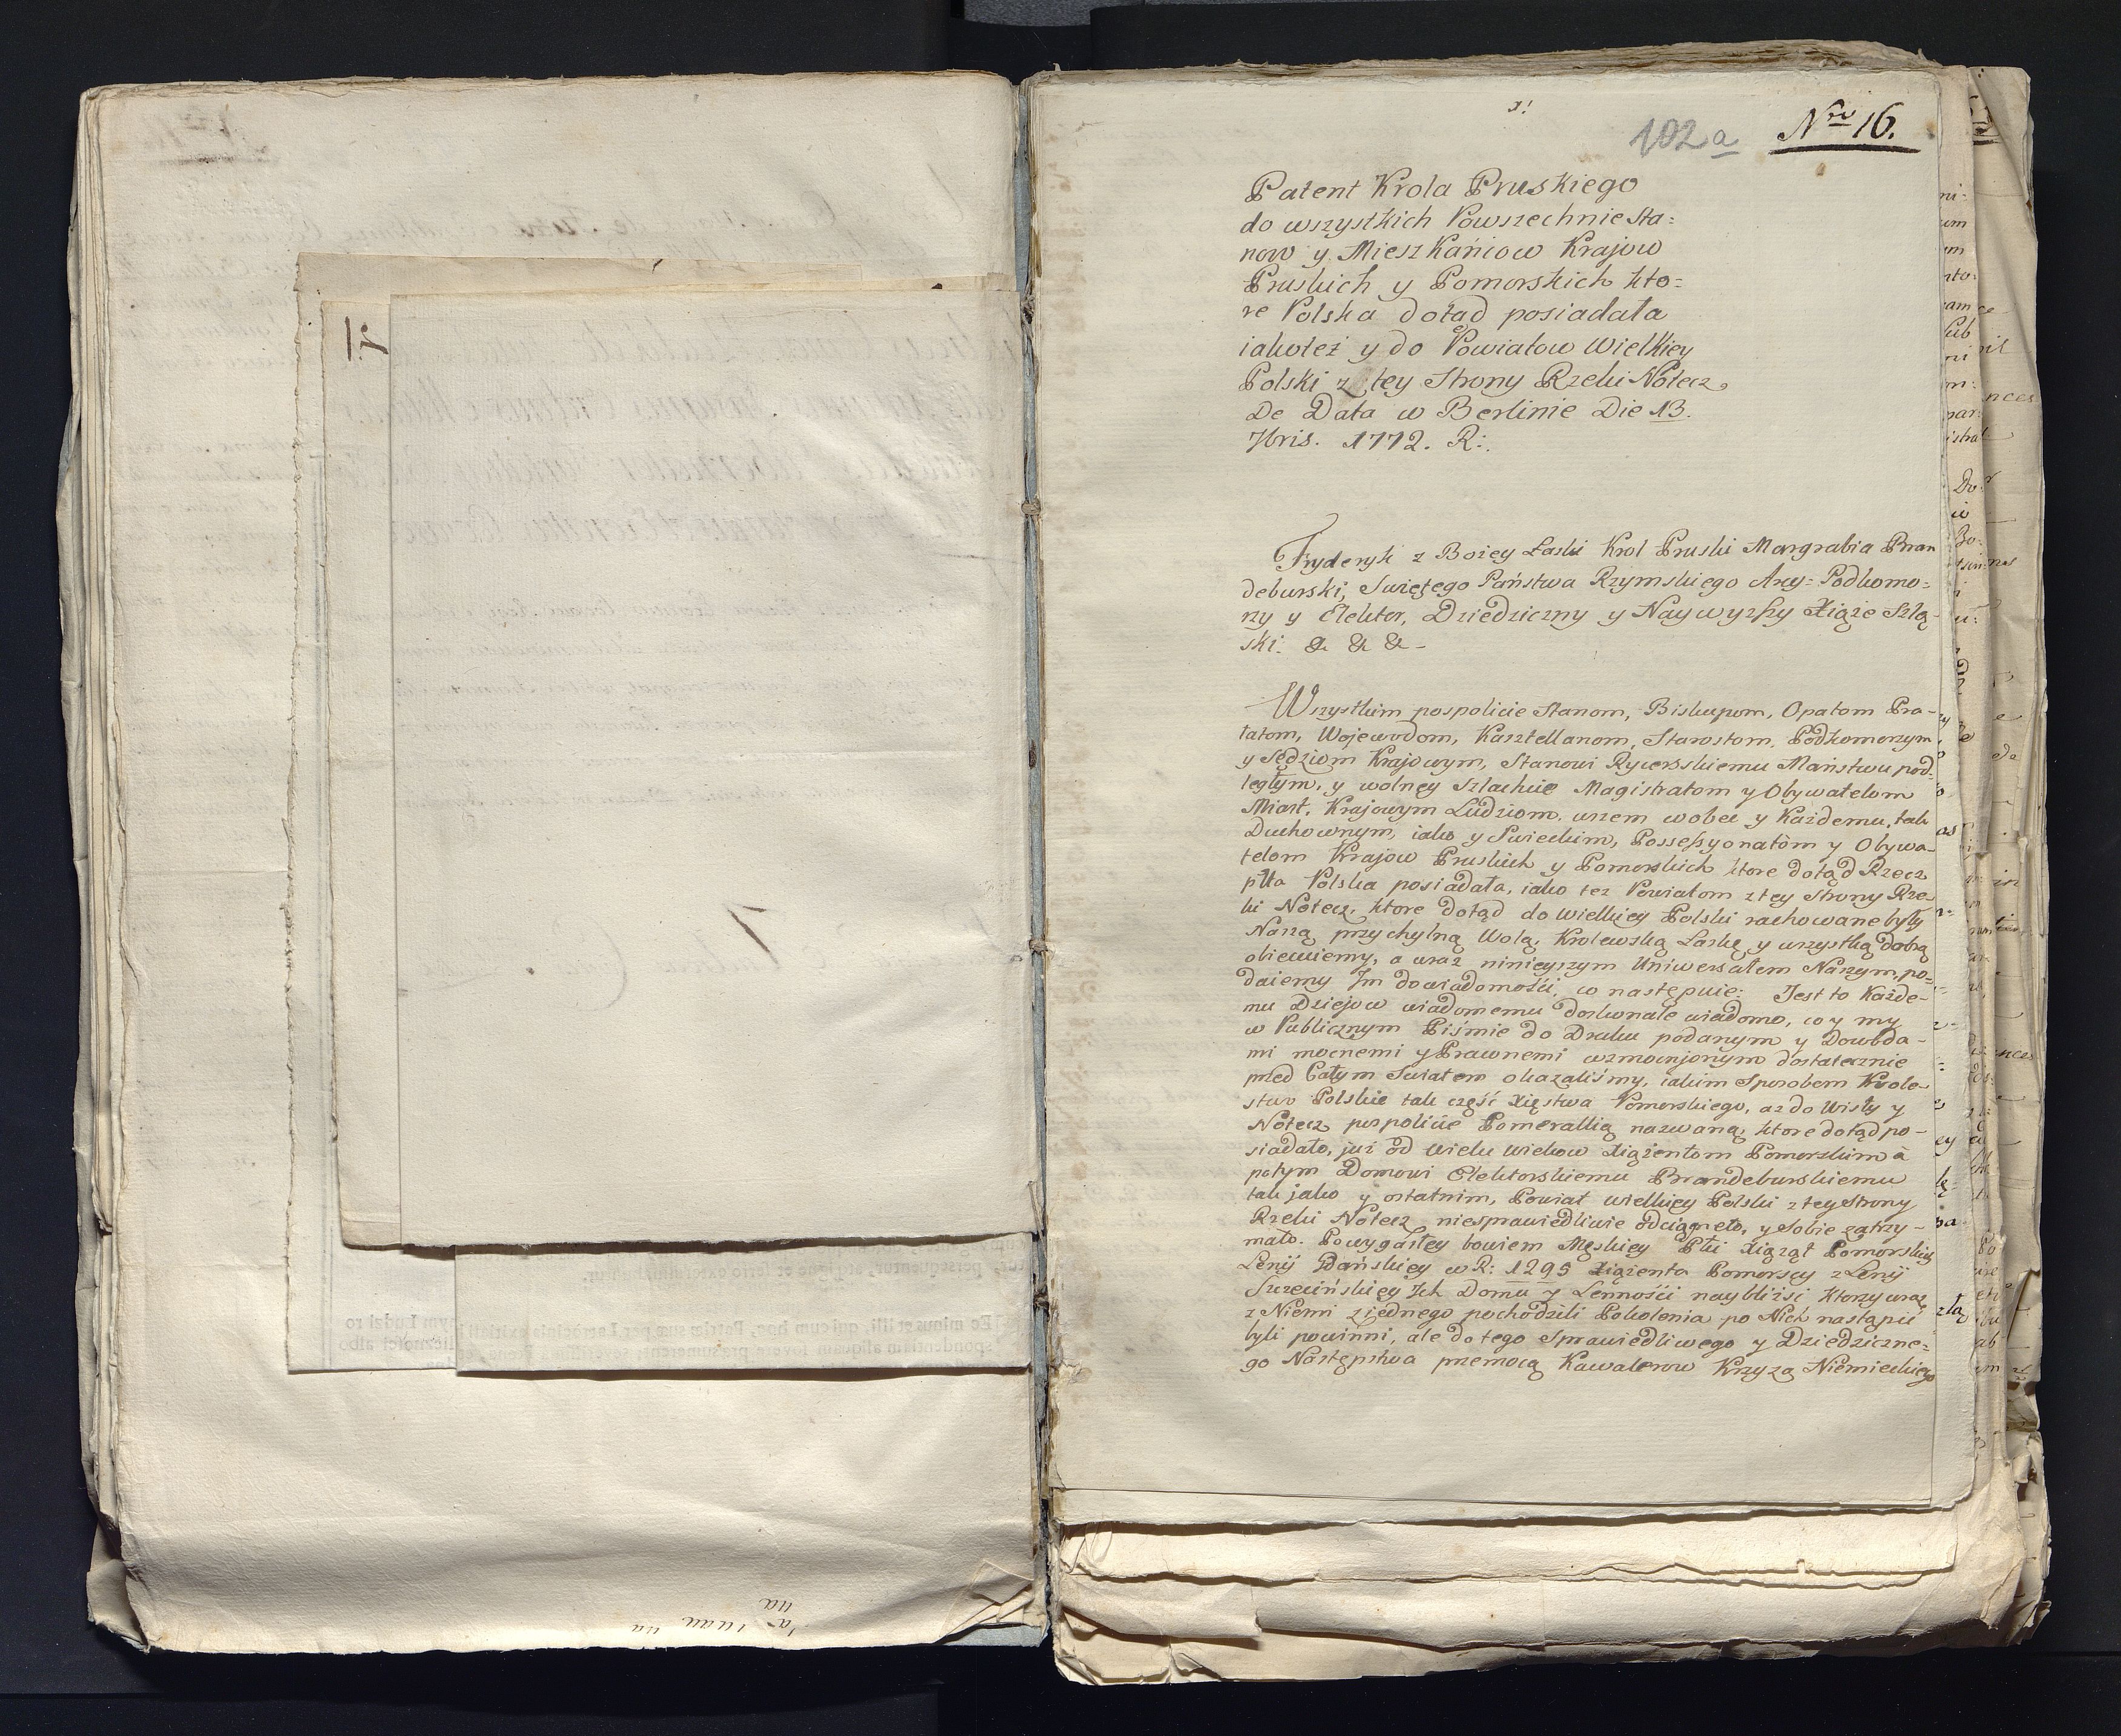 102a Nro 16.
Patent Krola Pruskiego
do wszystkich Powszechnie Sta=
now y Mieszkańcow Krajow
Pruskich y Pomorskich kto=
re Polska dotąd posiadała
iakoteż y do Powiatow Wielkiey
Polski z tey Strony Rzeki Notecz
De Data w Berlinie Die 13.
7bris. 1772. R:.
Fryderyk z Bożey Łaski Krol Pruski Margrabia Bran
deburski, Swiętego Państwa Rzymskiego Arcy=Podkomo=
rzy y Elektor, Dziedziczny y Naywyższy Xiąże Szlą-
ski: & & & -
Wszystkim pospolicie Stanom, Biskupom, Opatom Pra-
łatom, Wojewodom, Kasztellanom, Starostom, Podkomorzym
y Sędziom Krajowym, Stanowi Rycerskiemu Maństwu pod=
ległym, y wolney Szlachcie Magistratom y Obywatelom
Miast, Krajowym Ludziom, wszem wobec y Każdemu, tak
Duchownym, iako y Swieckim, Possessyonatom y Obywa-
telom Krajow Pruskich y Pomorskich ktore dotąd Rzecz
plta Polska posiadała, iako też Powiatom z tey Strony Rze-
ki Notecz, ktore dotąd do wielkiey Polski rachowane były
Naszą przychylną Wolą, Krolewską Łaskę y wszystką dobrą
ofiecuiemy, a wraz ninieyszym Uniwersałem Naszym, po=
daiemy Im do wiadomości, co następuie: Jest to Każde-
mu Dziejow wiadomemu doskonale wiadomo, co y my
w Publicznym Piśmie do Druku podanym y Dowoda-
mi mocnemi y Prawnemi wzmocnjonym dostatecznie
przed Całym Swiatem okazaliśmy, iakim Sposobem Krole-
stwo Polskie tak część Xięstwa Pomorskiego, aż do Wisły y
Notecz pospolicie Pomerallią nazwaną, ktore dotąd po-
siadało, już od wielu wiekow Xiążentom Pomorskim a
potym Domowi Elektorskiemu Brandeburskiemu
tak jako y ostatnim, Powiat wielkiey Polski z tey Strony
Rzeki Notecz niesprawiedliwie odciągneło, y Sobie zatrzy-
mało. Po wygasłey bowiem Męskiey Płci Xiążąt Pomorskich
Lenij Gdańskiey w R: 1295 Xiążenta Pomorscy z Lenij
Szczecińskiey Ich Domu y Lenności naybliżsi Ktorzy wraz
z Niemi z jednego pochodzili Pokolenia po Nich nastąpić
byli powinni, ale do tego Sprawiedliwego y Dziedziczne=
go Następstwa przemocą Kawalerow Krzyża Niemieckiego